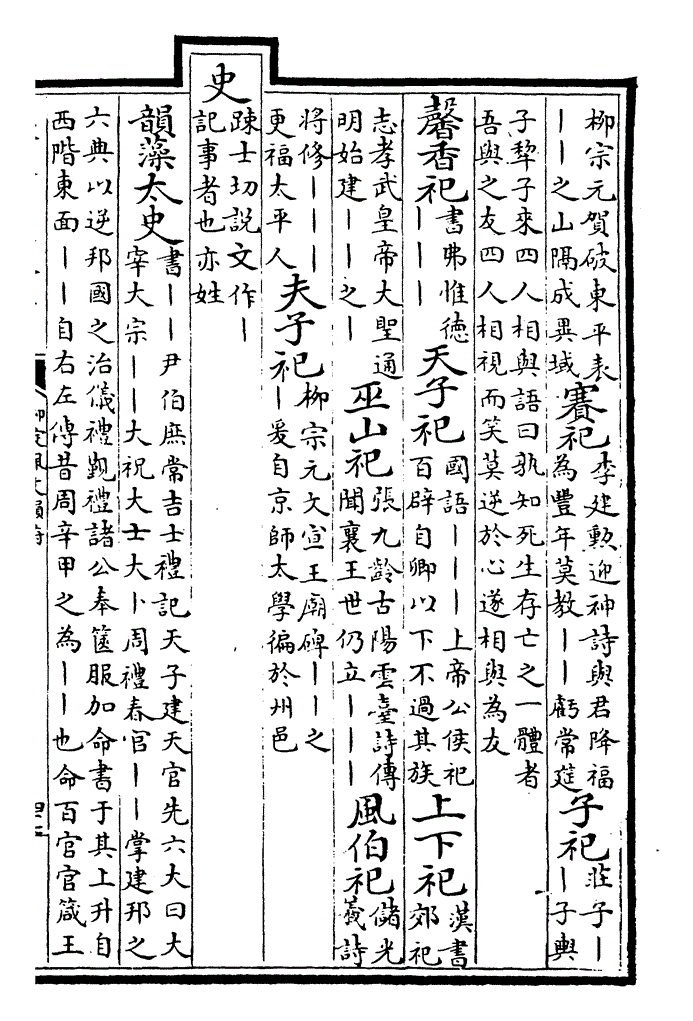 柳宗元賀破東平表
――之山隅成異域
賽祀
李建勲迎神詩與君降福
為豐年莫教――虧常筵
子祀
莊子―
―子輿
子犂子來四人相與語曰孰知死生存亡之一體者
吾與之友四人相視而笑莫逆於心遂相與為友
馨香祀
書弗惟德
―――
天子祀
國語―――上帝公侯祀
百辟自卿以下不過其族
上下祀
漢書
郊祀
志孝武皇帝大聖通
明始建――之―
巫山祀
張九齡古陽雲臺詩傳
聞襄王世仍立―――
風伯祀
儲光
羲詩
將修―――
更福太平人
夫子祀
柳宗元文宣王廟碑――之
―爰自京師太學徧於州邑
史
踈士切説文作―
記事者也亦姓
韻藻
太史
書――尹伯庶常吉士禮記天子建天官先六大曰大
宰大宗――大祝大士大卜周禮春官――掌建邦之
六典以逆邦國之治儀禮覲禮諸公奉篋服加命書于其上升自
西階東面――自右左傳昔周辛甲之為――也命百官官箴王